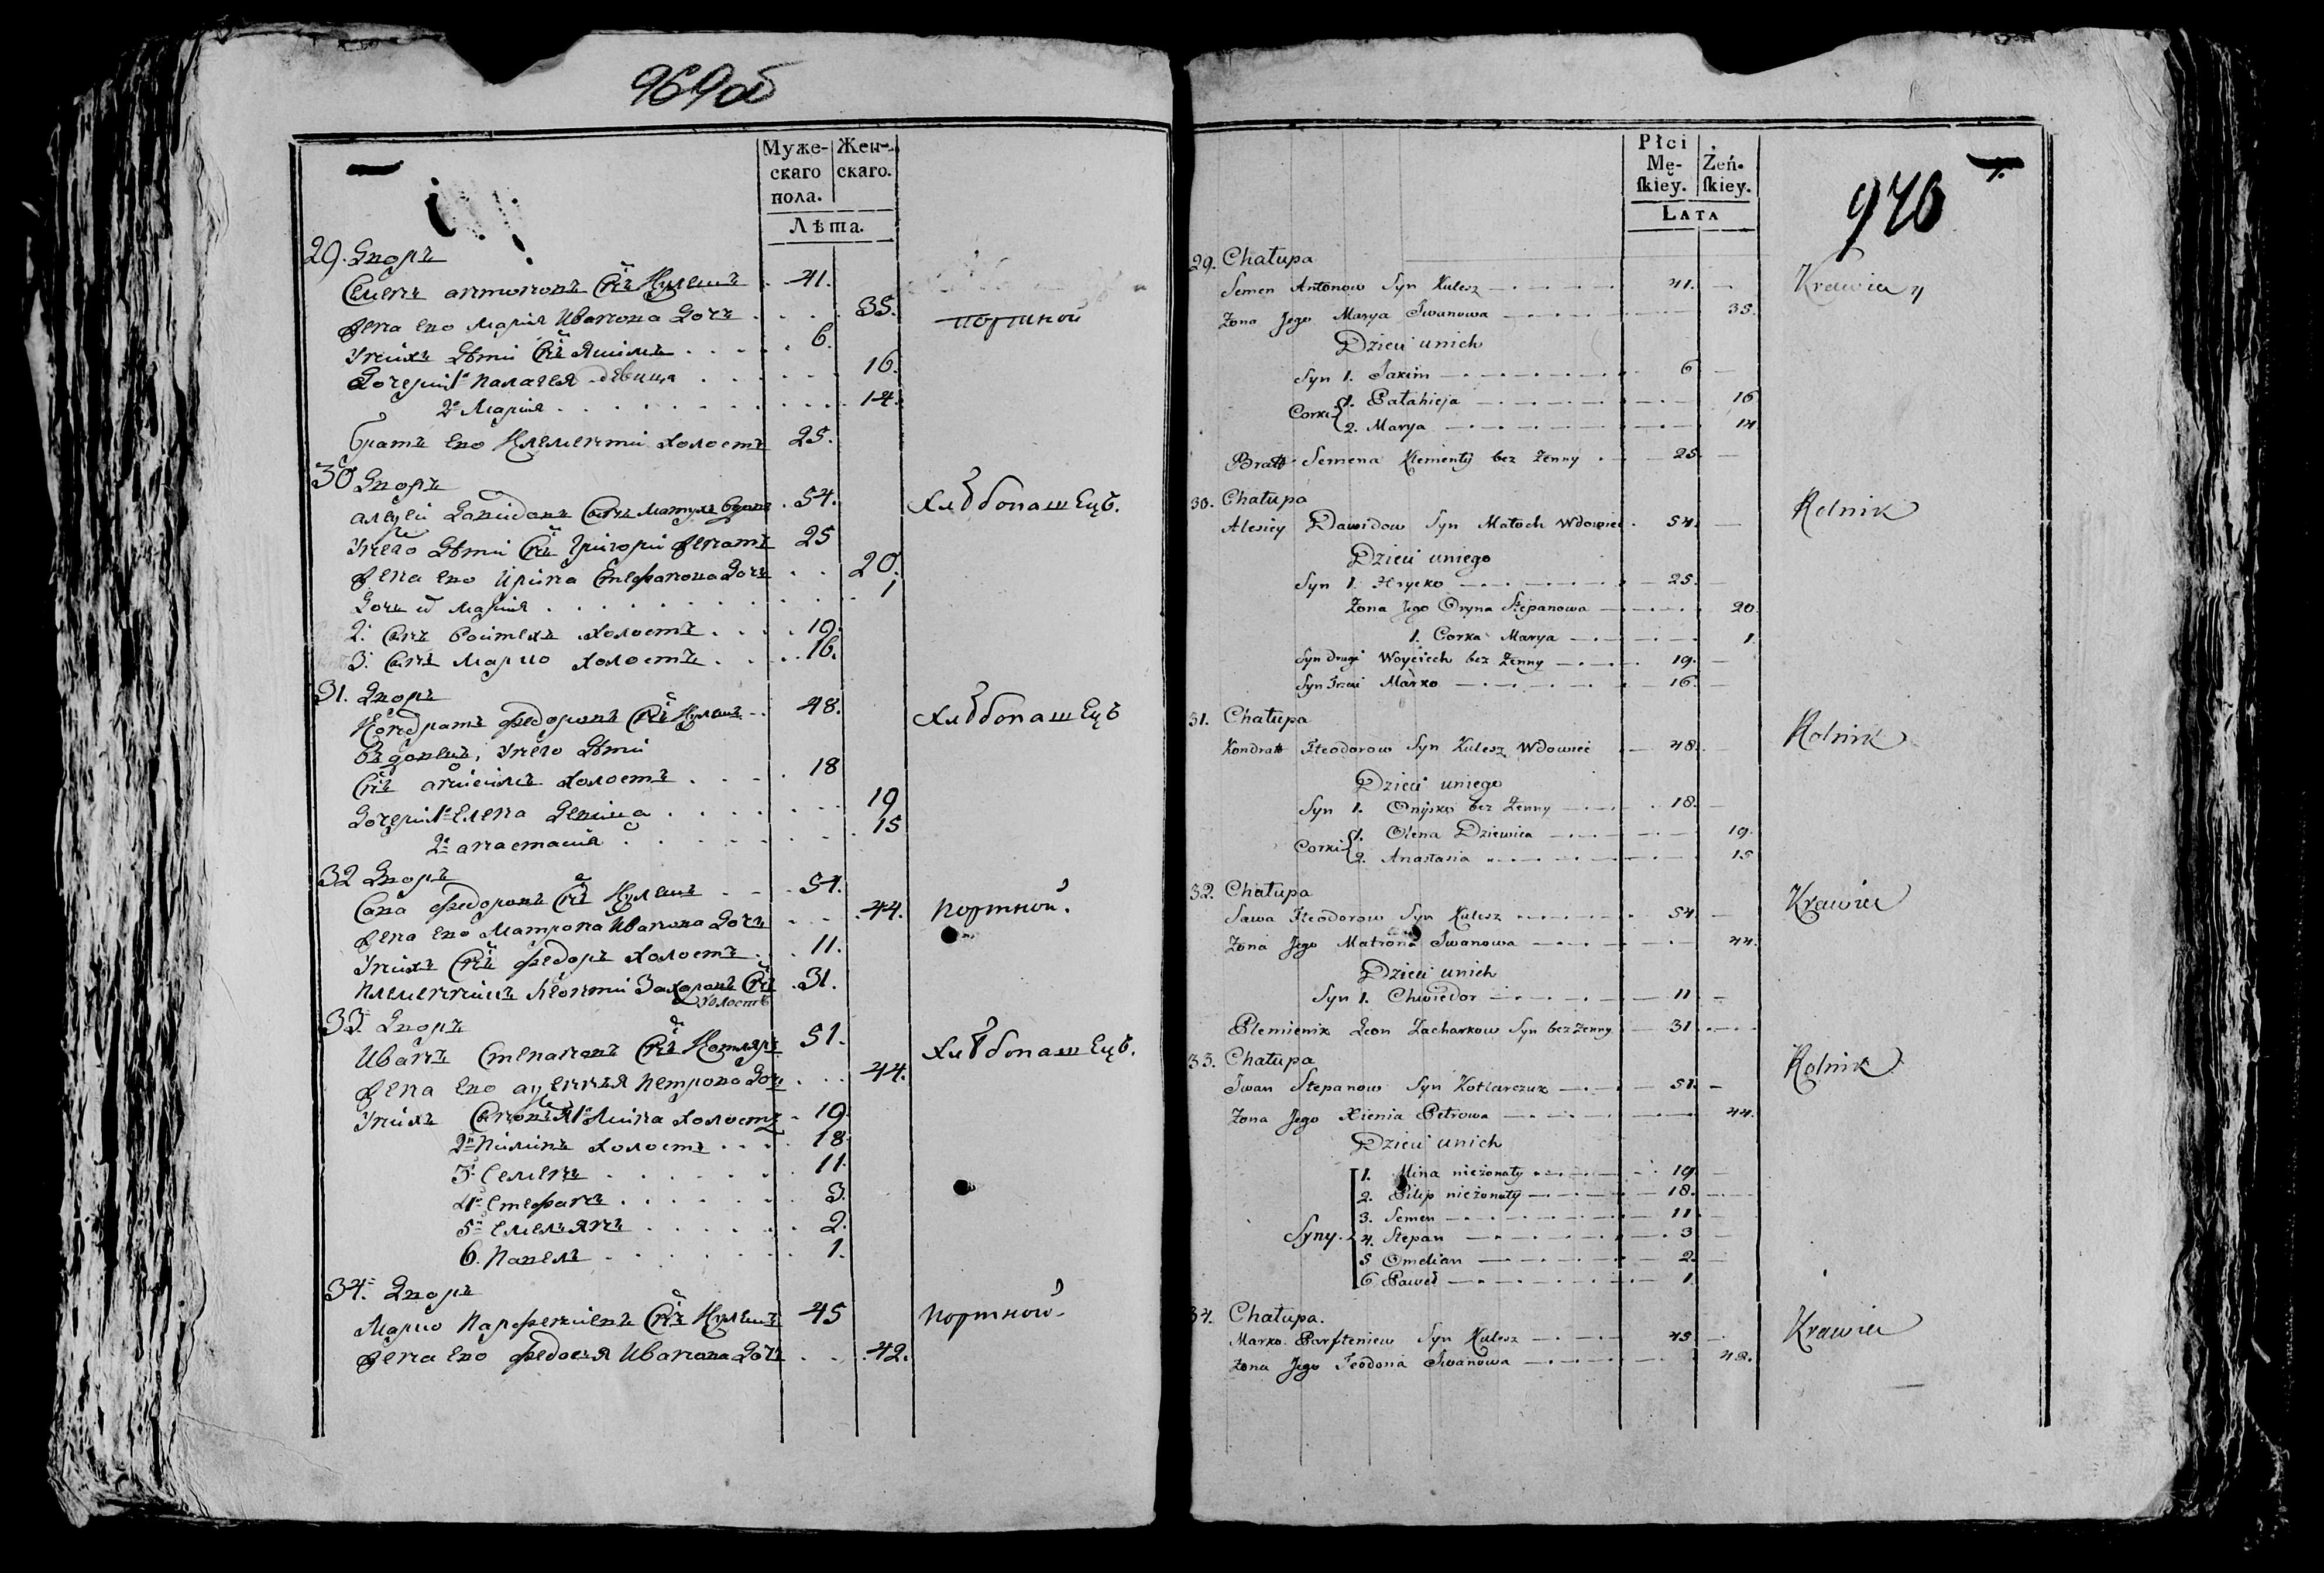 969об
Муже-
скаго
пола.
Жен-
скаго.
Лѣта.
29. Дворъ
Семенъ антоновъ Снъ Кулешъ 41.
жена ево Марiя Иванова Дочь 35. портной
Унихъ Дѣти Снъ Якимъ 6.
Дочери 1я Палагея девица 16.
2я Марiя 14.
братъ ево Климентiй холостъ 25.
30 Дворъ
алеѯѣй Давидовъ Снъ Матухъ вдовъ 54. хлѣбопашецъ.
Унего Дѣти Снъ Григорiй женатъ 25
жена ево Ирина Стефанова Дочь 20.
Дочь и Марiя 1
2. Снъ Войтехъ холостъ 19.
3. Снъ Марко холостъ 16.
31. Дворъ
Кондратъ Федоровъ Снъ Кулешъ 48. хлѣбопашецъ
вдовецъ, унего Дѣти
Снъ анисимъ холостъ 18
Дочери 1я Елена Девица 19
2я анастасiя 15
32 Дворъ
Сава Федоровъ Снъ Кулешъ 54.
жена ево Матрона Иванова Дочь 44. портной.
Унихъ Снъ Федоръ холостъ 11.
племенникъ Леонтiй Захаровъ Снъ 31.
холостъ
33. Дворъ
Иванъ Степановъ Снъ Котляръ 51. хлѣбопашецъ.
жена ево аѯения Петрова Дочь 44.
Унихъ Сыновья 1й Мина холостъ 19.
2й Пилипъ холостъ 18
3й Семенъ 11.
4й Стефанъ 3.
5й Емельянъ 2.
6. Павелъ 1.
34. Дворъ
Марко Парфенiевъ Снъ Кулешъ 45 портной
жена ево Федосiя Иванова Дочь 42.
Płci
Mę-
ſkiey.
Żeń-
ſkiey.
LATA
970
29. Chałupa
Semen Antonow Syn Kulesz 41. Krawiec
Zona Jego Marya Iwanowa 35.
Dzieci unich
Syn 1. Jaxim 6
Corki 1. Pałahieja 16
2. Marya 14
Bratt Semena Klementy bez Zenny 25
30. Chałupa
Alexiey Dawidow Syn Matoch Wdowiec 54. Rolnik
Dzieci uniego
Syn 1. Hrycko 25.
Zona Jego Oryna Stepanowa 20.
1. Corka Marya 1.
Syn drugi Woyciech bez Zenny 19.
Syn Trzeci Marko 16.
31. Chałupa
Kondratt Fteodorow Syn Kulesz Wdowiec 48. Rolnik
Dzieci uniego
Syn 1. Onisko bez Zenny 18.
Corki 1. Olena Dziewica 19.
2. Anastasia 15
32. Chałupa
Sawa Fteodorow Syn Kulesz 54. Krawiec
Zona Jego Matrona Iwanowa 44.
Dzieci unich
Syn 1. Chwiedor 11
Plemienik Leon Zacharkow Syn bez Zenny 31
33. Chałupa
Iwan Stepanow Syn Kotlarczuk 51. Rolnik
Zona Jego Xienia Petrowa 44.
Dzieci unich
1. Mina nieżonaty 19.
2. Pilip nieżonaty 18.
3. Semen 11
Syny 4. Stepan 3
5 Omelian 2.
6 Paweł 1.
34. Chałupa.
Marko Parfteniew Syn Kulesz 45. Krawiec
Zona Jego Teodosia Iwanowa 42.